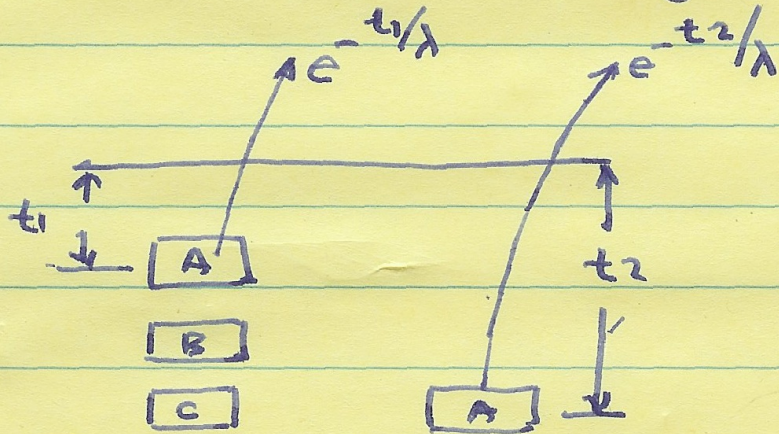 e^-t1/λ e^-t2/λ
t1
A
t2
B
C A